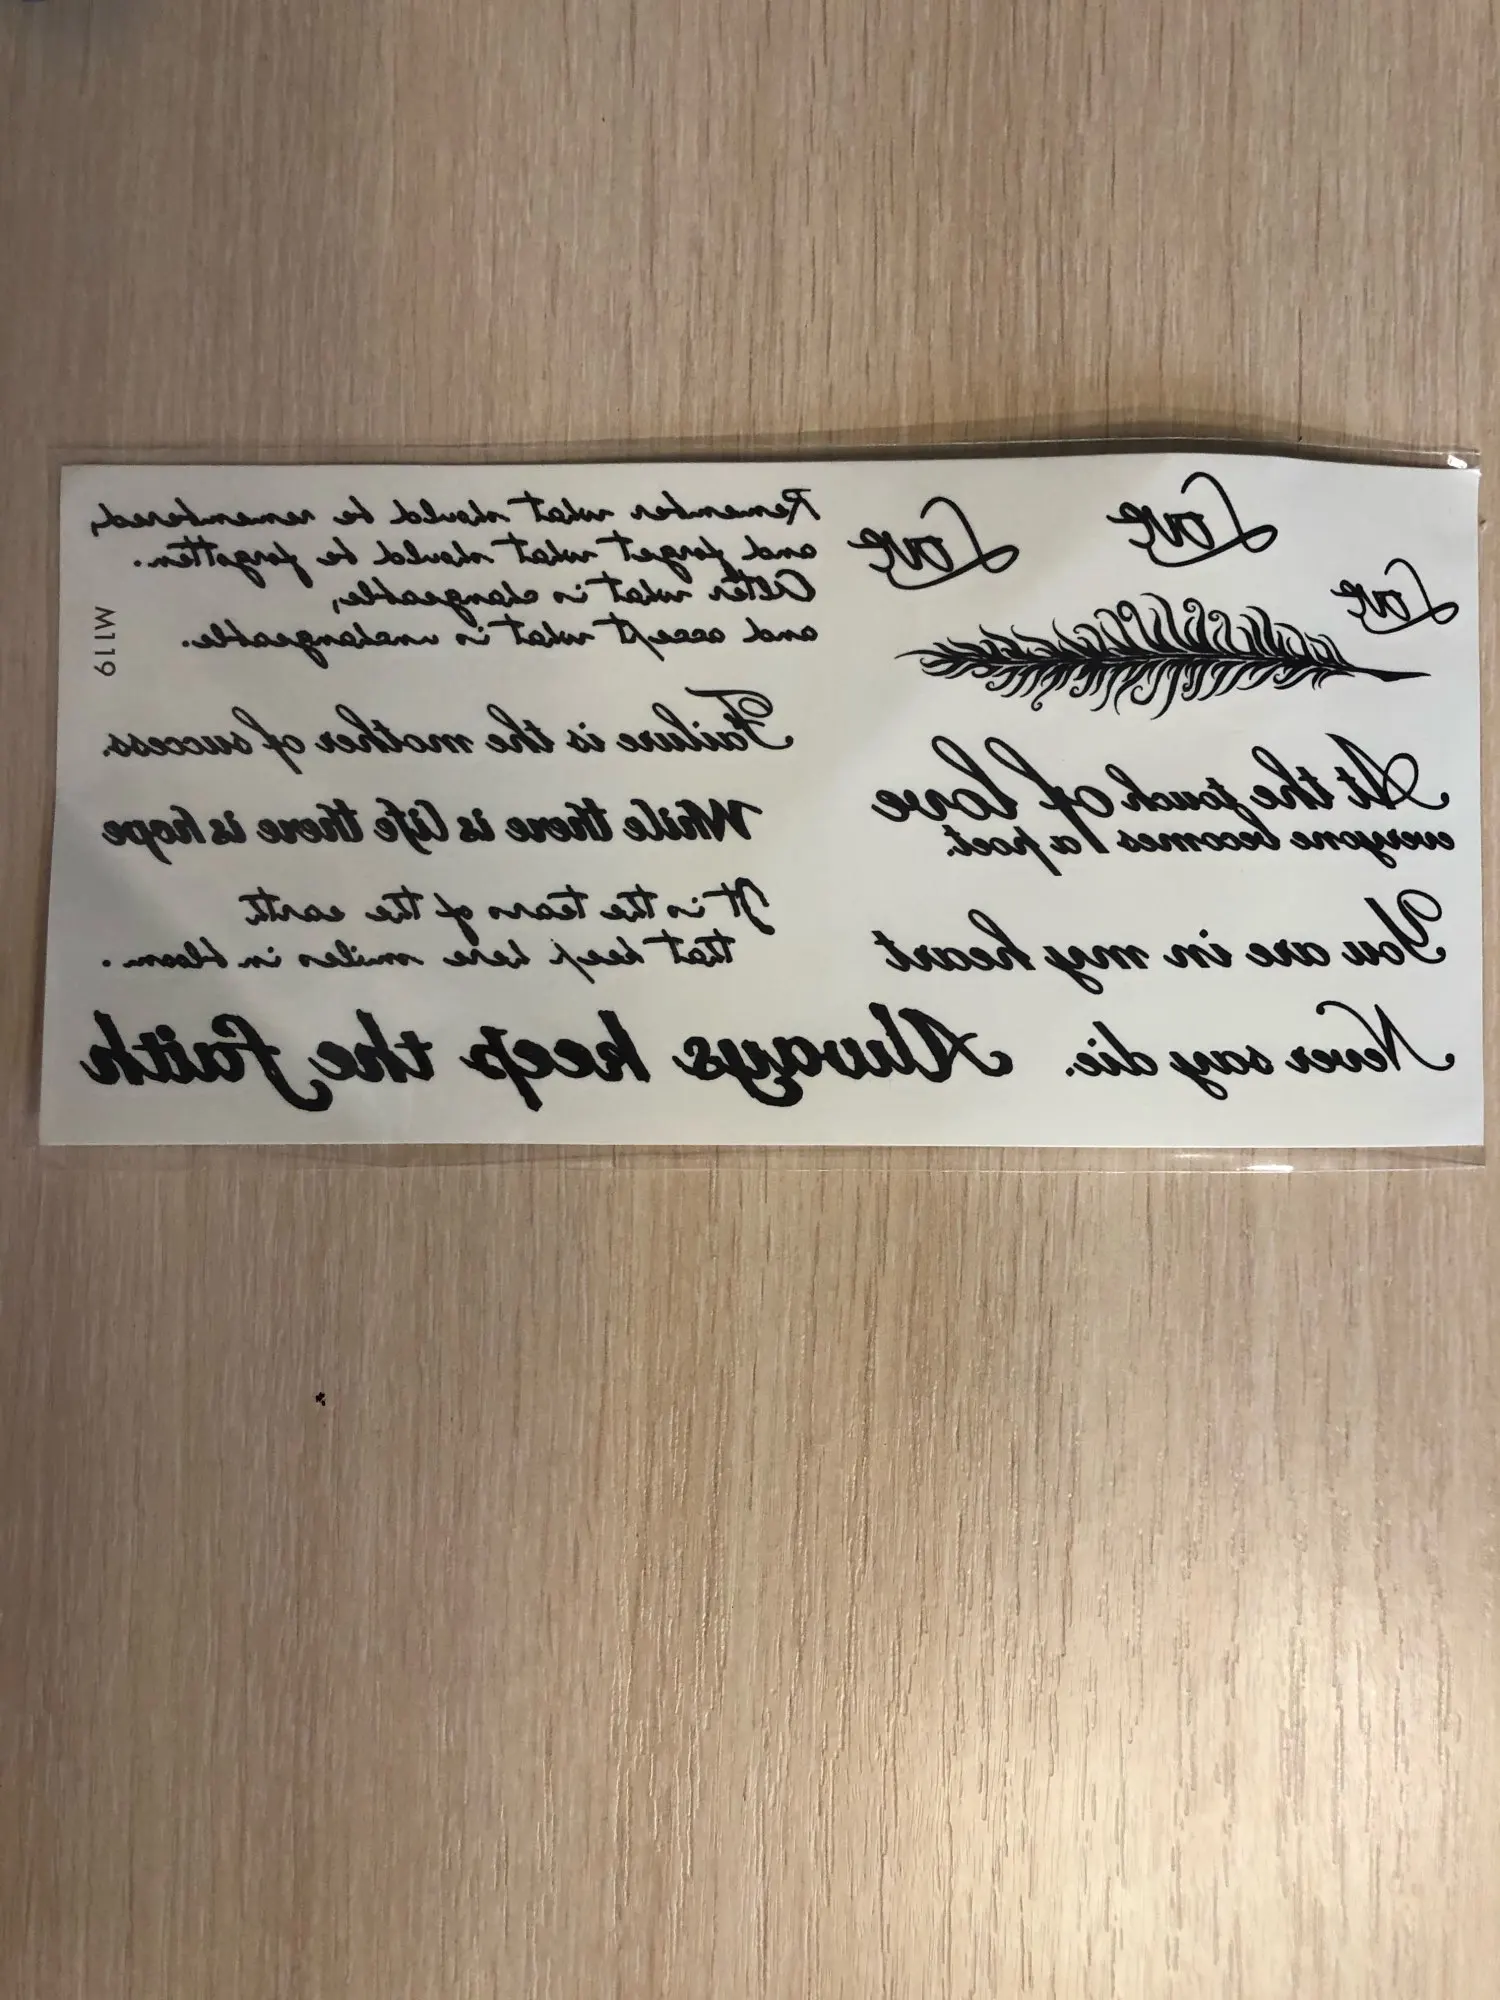 Love
Love
Love
At the touch of love
everyone becomes a poet.
You are in my heart
Never say die.
Remember what should be remembered,
and forget what should be forgotten.
Alter what is changeable,
and accept what is unchangeable.
Failure is the mother of success.
While there is life there is hope
It is the tears of the earth
that keep here smiles in bloom.
Always keep the faith
W119